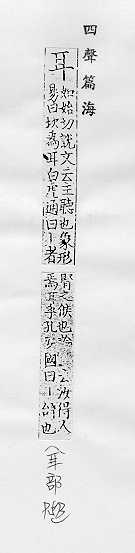 四聲篇海
耳
如始切說文云主聽也象形
易曰坎為耳白虎通曰丨者
腎之候也論云汝得人
焉耳乎孔安國曰丨辝也
(耳部